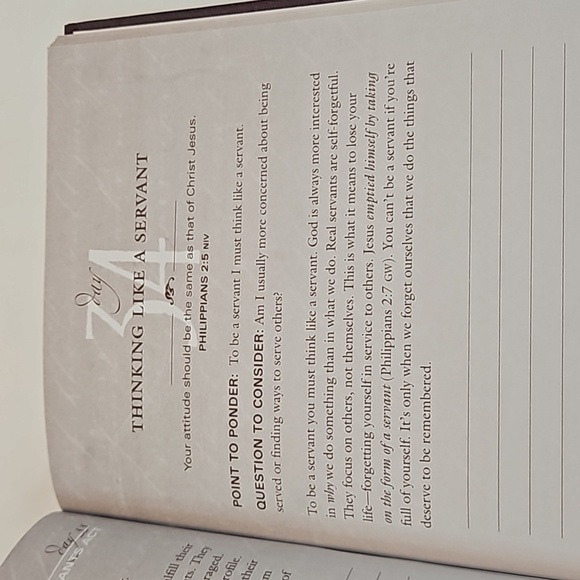 day
34
THINKING LIKE A SERVANT
Your attitude should be the same as that of Christ Jesus.
PHILIPPIANS 2:5 NIV
POINT TO PONDER: To be a servant I must think like a servant.
QUESTION TO CONSIDER: Am I usually more concerned about being
served or finding ways to serve others?
To be a servant you must think like a servant. God is always more interested
in why we do something than in what we do. Real servants are self-forgetful.
They focus on others, not themselves. This is what it means to lose your
life—forgetting yourself in service to others. Jesus emptied himself by taking
on the form of a servant (Philippians 2:7 GW). You can't be a servant if you're
full of yourself. It's only when we forget ourselves that we do the things that
deserve to be remembered.
day
ANTS ACT
fulfill their
They
of